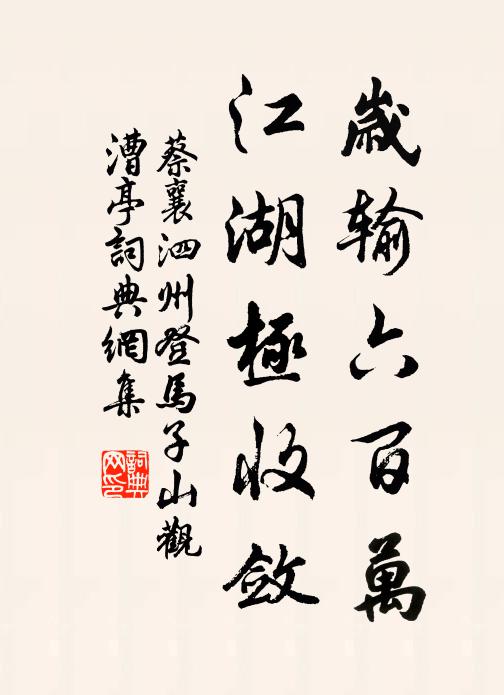 歲輸六百萬
江湖極收斂
蔡襄泗州登馬子山觀
漕亭詞典網集
詞典
网印